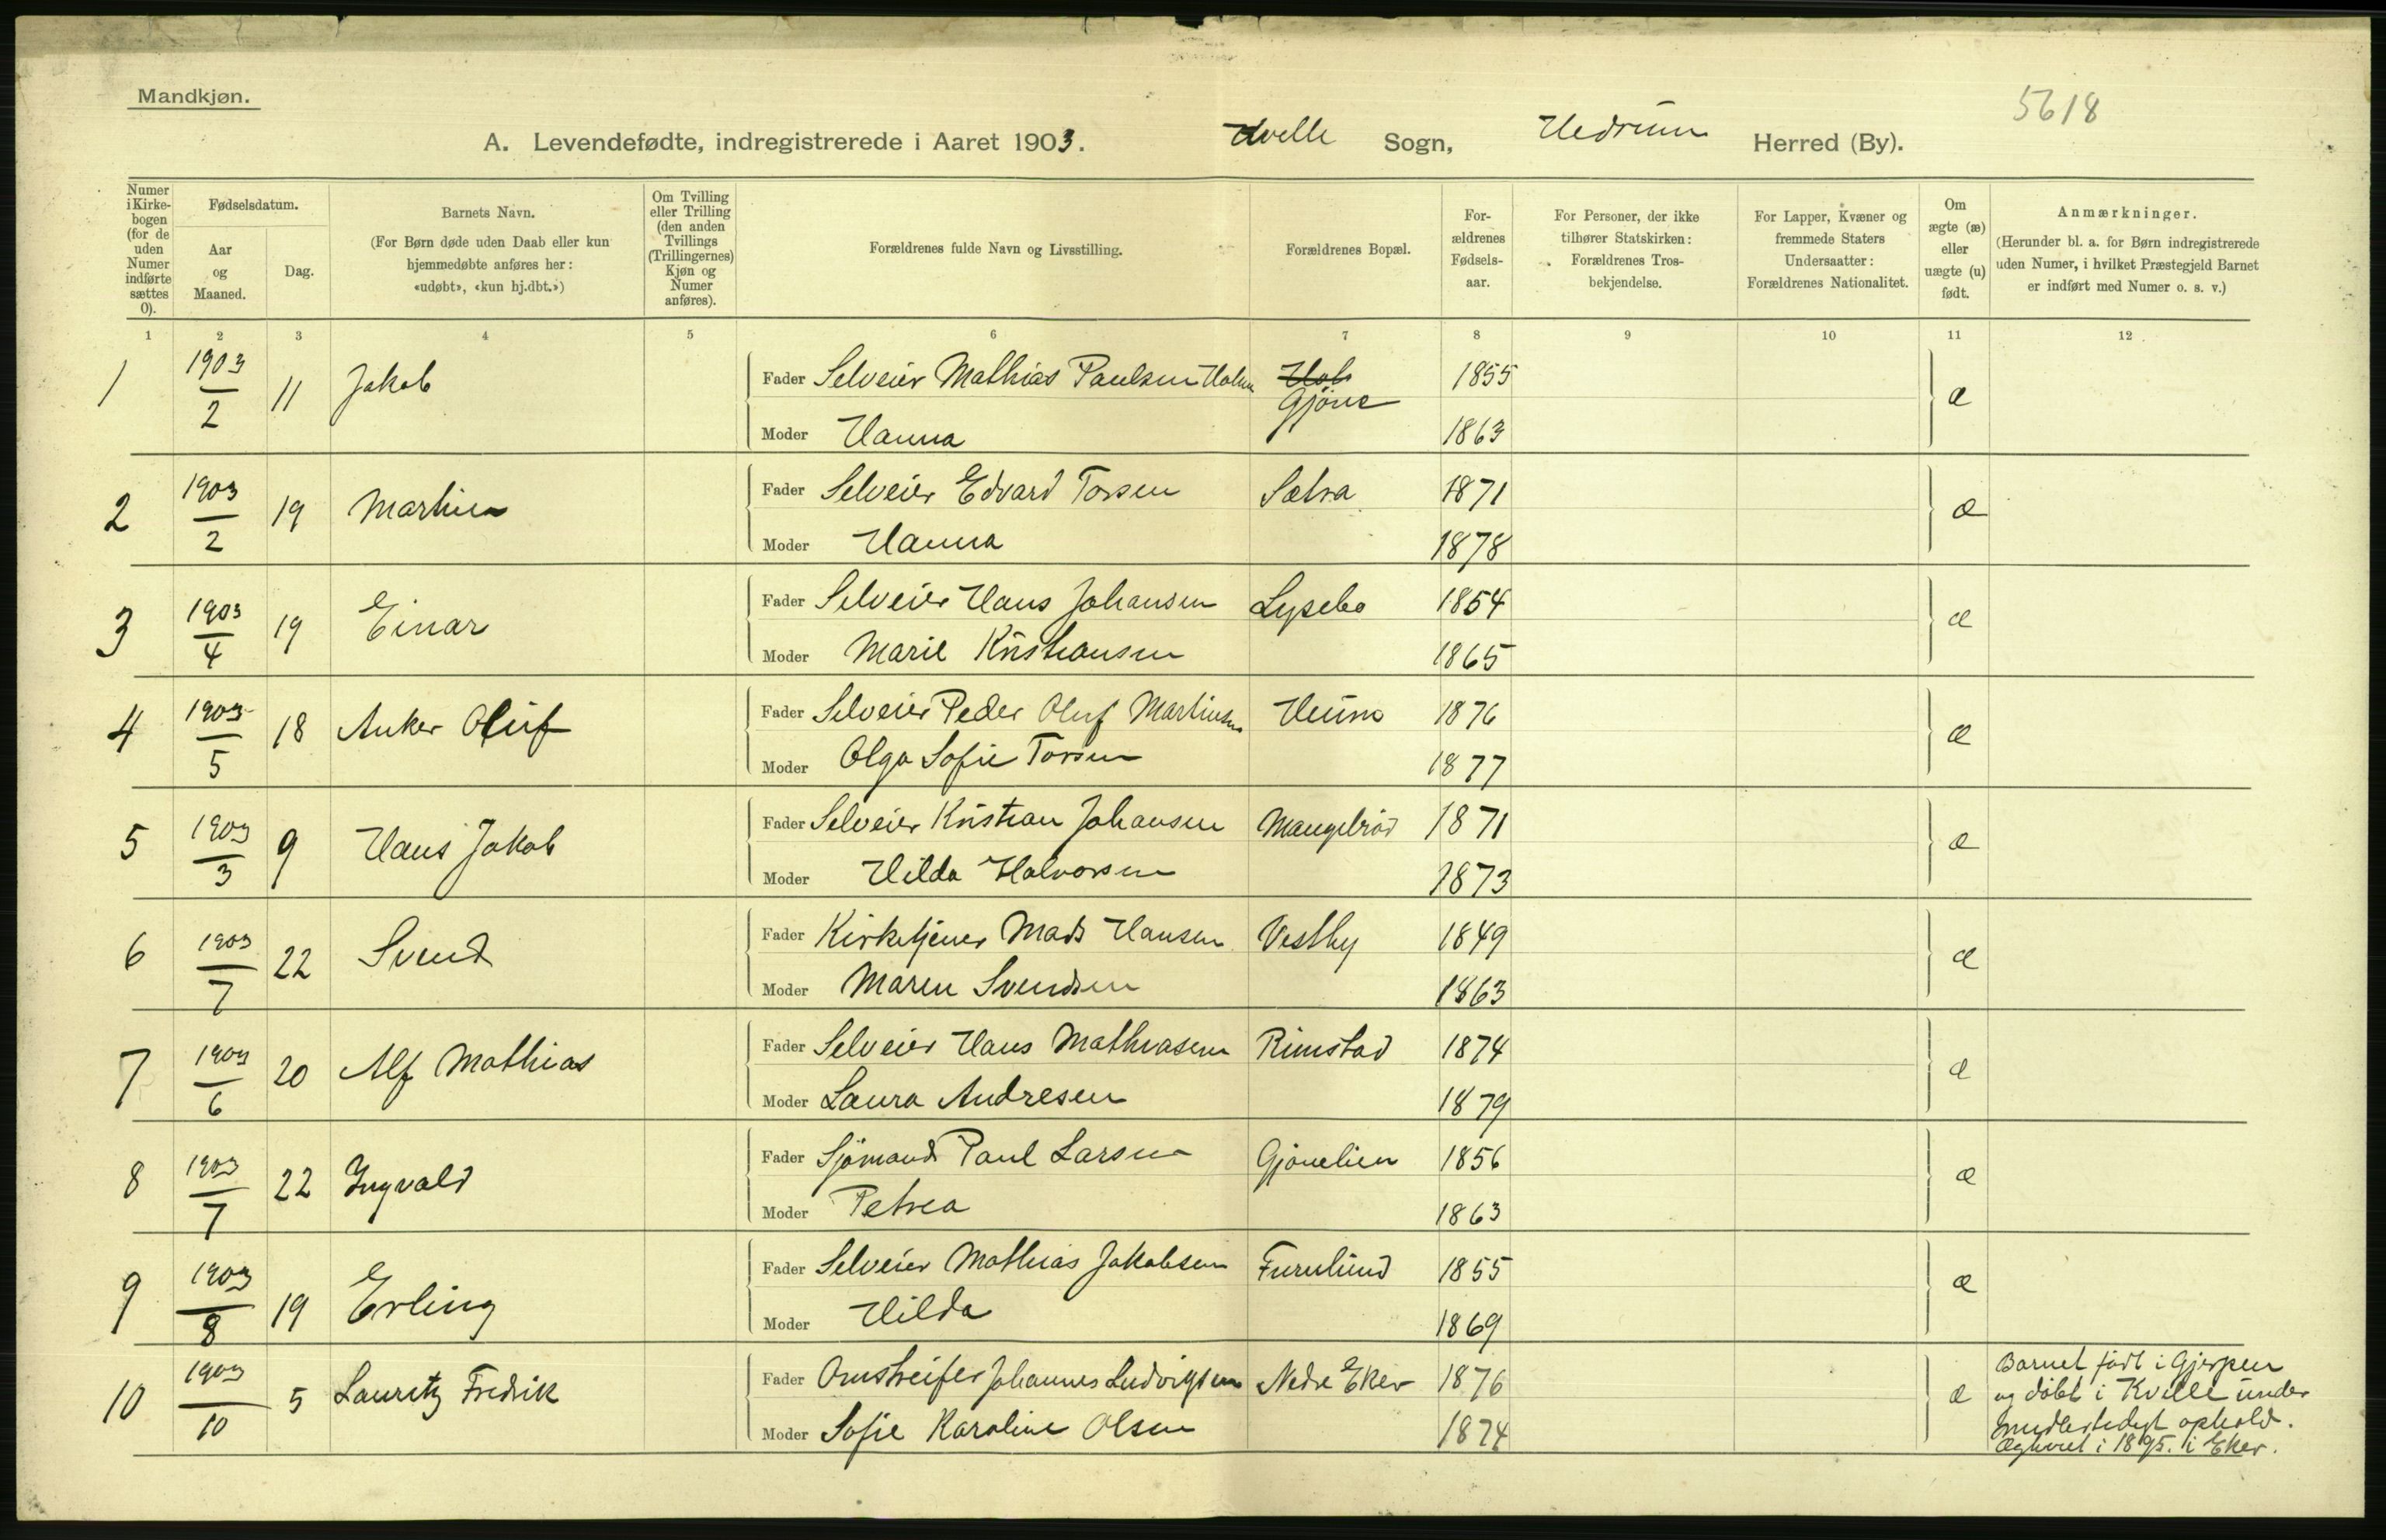 Mandkjøn.
5618
A. Levendefødte, indregistrerede i Aaret 1903. Hvelle Sogn, Hedrum Herred (By).
Numer i Kirke-bogen (for de uden Numer indførte sættes 0).
Fødselsdatum.
Aar og Maaned.
Dag.
Barnets Navn.
(For Børn døde uden Daab eller kun hjemmedøbte anføres her: «udøbt», «kun hj.dbt.»)
Om Tvilling eller Trilling (den anden Tvillings (Trillingernes) Kjøn og Numer anføres).
Forældrenes fulde Navn og Livsstilling.
Forældrenes Bopæl.
For-ældrenes Fødsels-aar.
For Personer, der ikke tilhører Statskirken: Forældrenes Tros-bekjendelse.
For Lapper, Kvæner og fremmede Staters Undersaatter: Forældrenes Nationalitet.
Om ægte (æ) eller uægte (u) født.
Anmærkninger.
(Herunder bl. a. for Børn indregistrerede uden Numer, i hvilket Præstegjeld Barnet er indført med Numer o. s. v.)
1 2 3 4 5 6 7 8 9 10 11 12
1 1903/2 11 Jakob Fader Selveier Mathias Paulsen Holm Gjöne 1855 æ
Moder Hanna 1863
2 1903/2 19 Martin Fader Selveier Edvard Torsen Sætra 1871 æ
Moder Hanna 1878
3 1903/4 19 Einar Fader Selveier Hans Johansen Lysebo 1854 æ
Moder Marie Kristiansen 1865
4 1903/5 18 Anker Oluf Fader Selveier Peder Oluf Martinsen Heum 1876 æ
Moder Olga Sofie Torsen 1877
5 1903/3 9 Hans Jakob Fader Selveier Kristian Johansen Mangelröd 1871 æ
Moder Hilda Halvorsen 1873
6 1903/7 22 Svend Fader Kirketjener Mads Hansen Vestby 1849 æ
Moder Maren Svendsen 1863
7 1903/6 20 Alf Mathias Fader Selveier Hans Mathiasen Rimstad 1874 æ
Moder Laura Andresen 1879
8 1903/7 22 Ingvald Fader Sjömand Paul Larsen Gjönelien 1856 æ
Moder Petrea 1863
9 1903/8 19 Erling Fader Selveier Mathias Jakobsen Furulund 1855 æ
Moder Hilda 1869
10 1903/10 5 Lauritz Fredrik Fader Omstreifer Johannes Ludvigsen Nedre Eker 1876 æ
Moder Sofie Karoline Olsen 1874
Barnet födt i Gjerpen
og döbt i Kvelle under
midlertidigt ophold.
Ægteviet i 1895. i Eker.